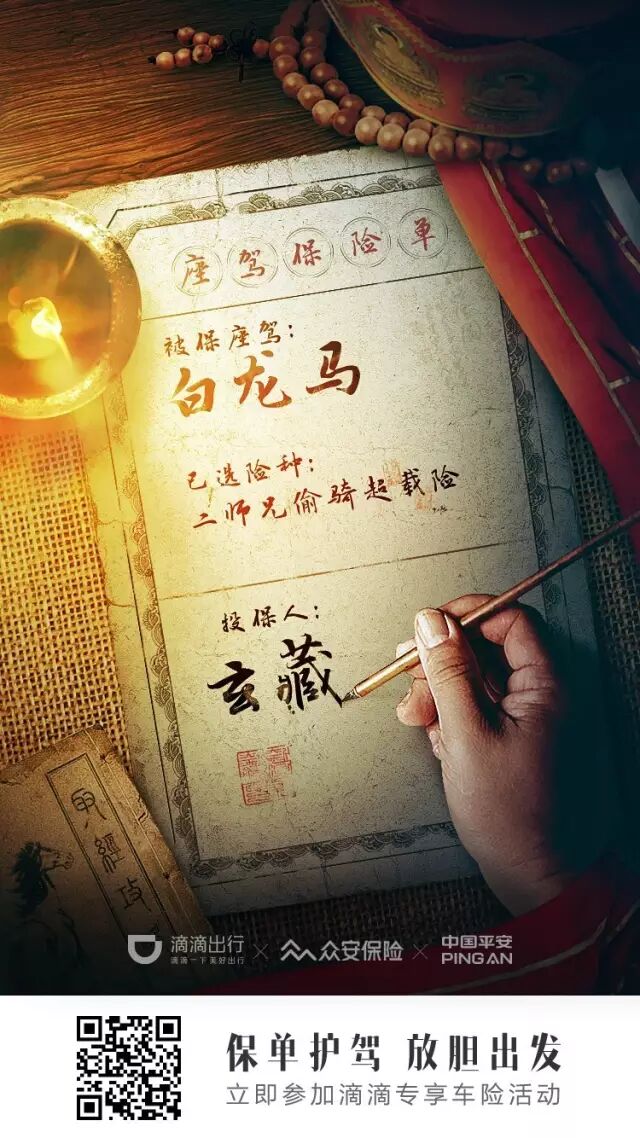 座驾保险单
被保座驾：
白龙马
已选险种：
二师兄偷骑超载险
投保人：
玄藏
取經攻
滴滴出行
滴滴一下 美好出行
×
众安保险
×
中国平安
PING AN
保单护驾 放胆出发
立即参加滴滴专享车险活动